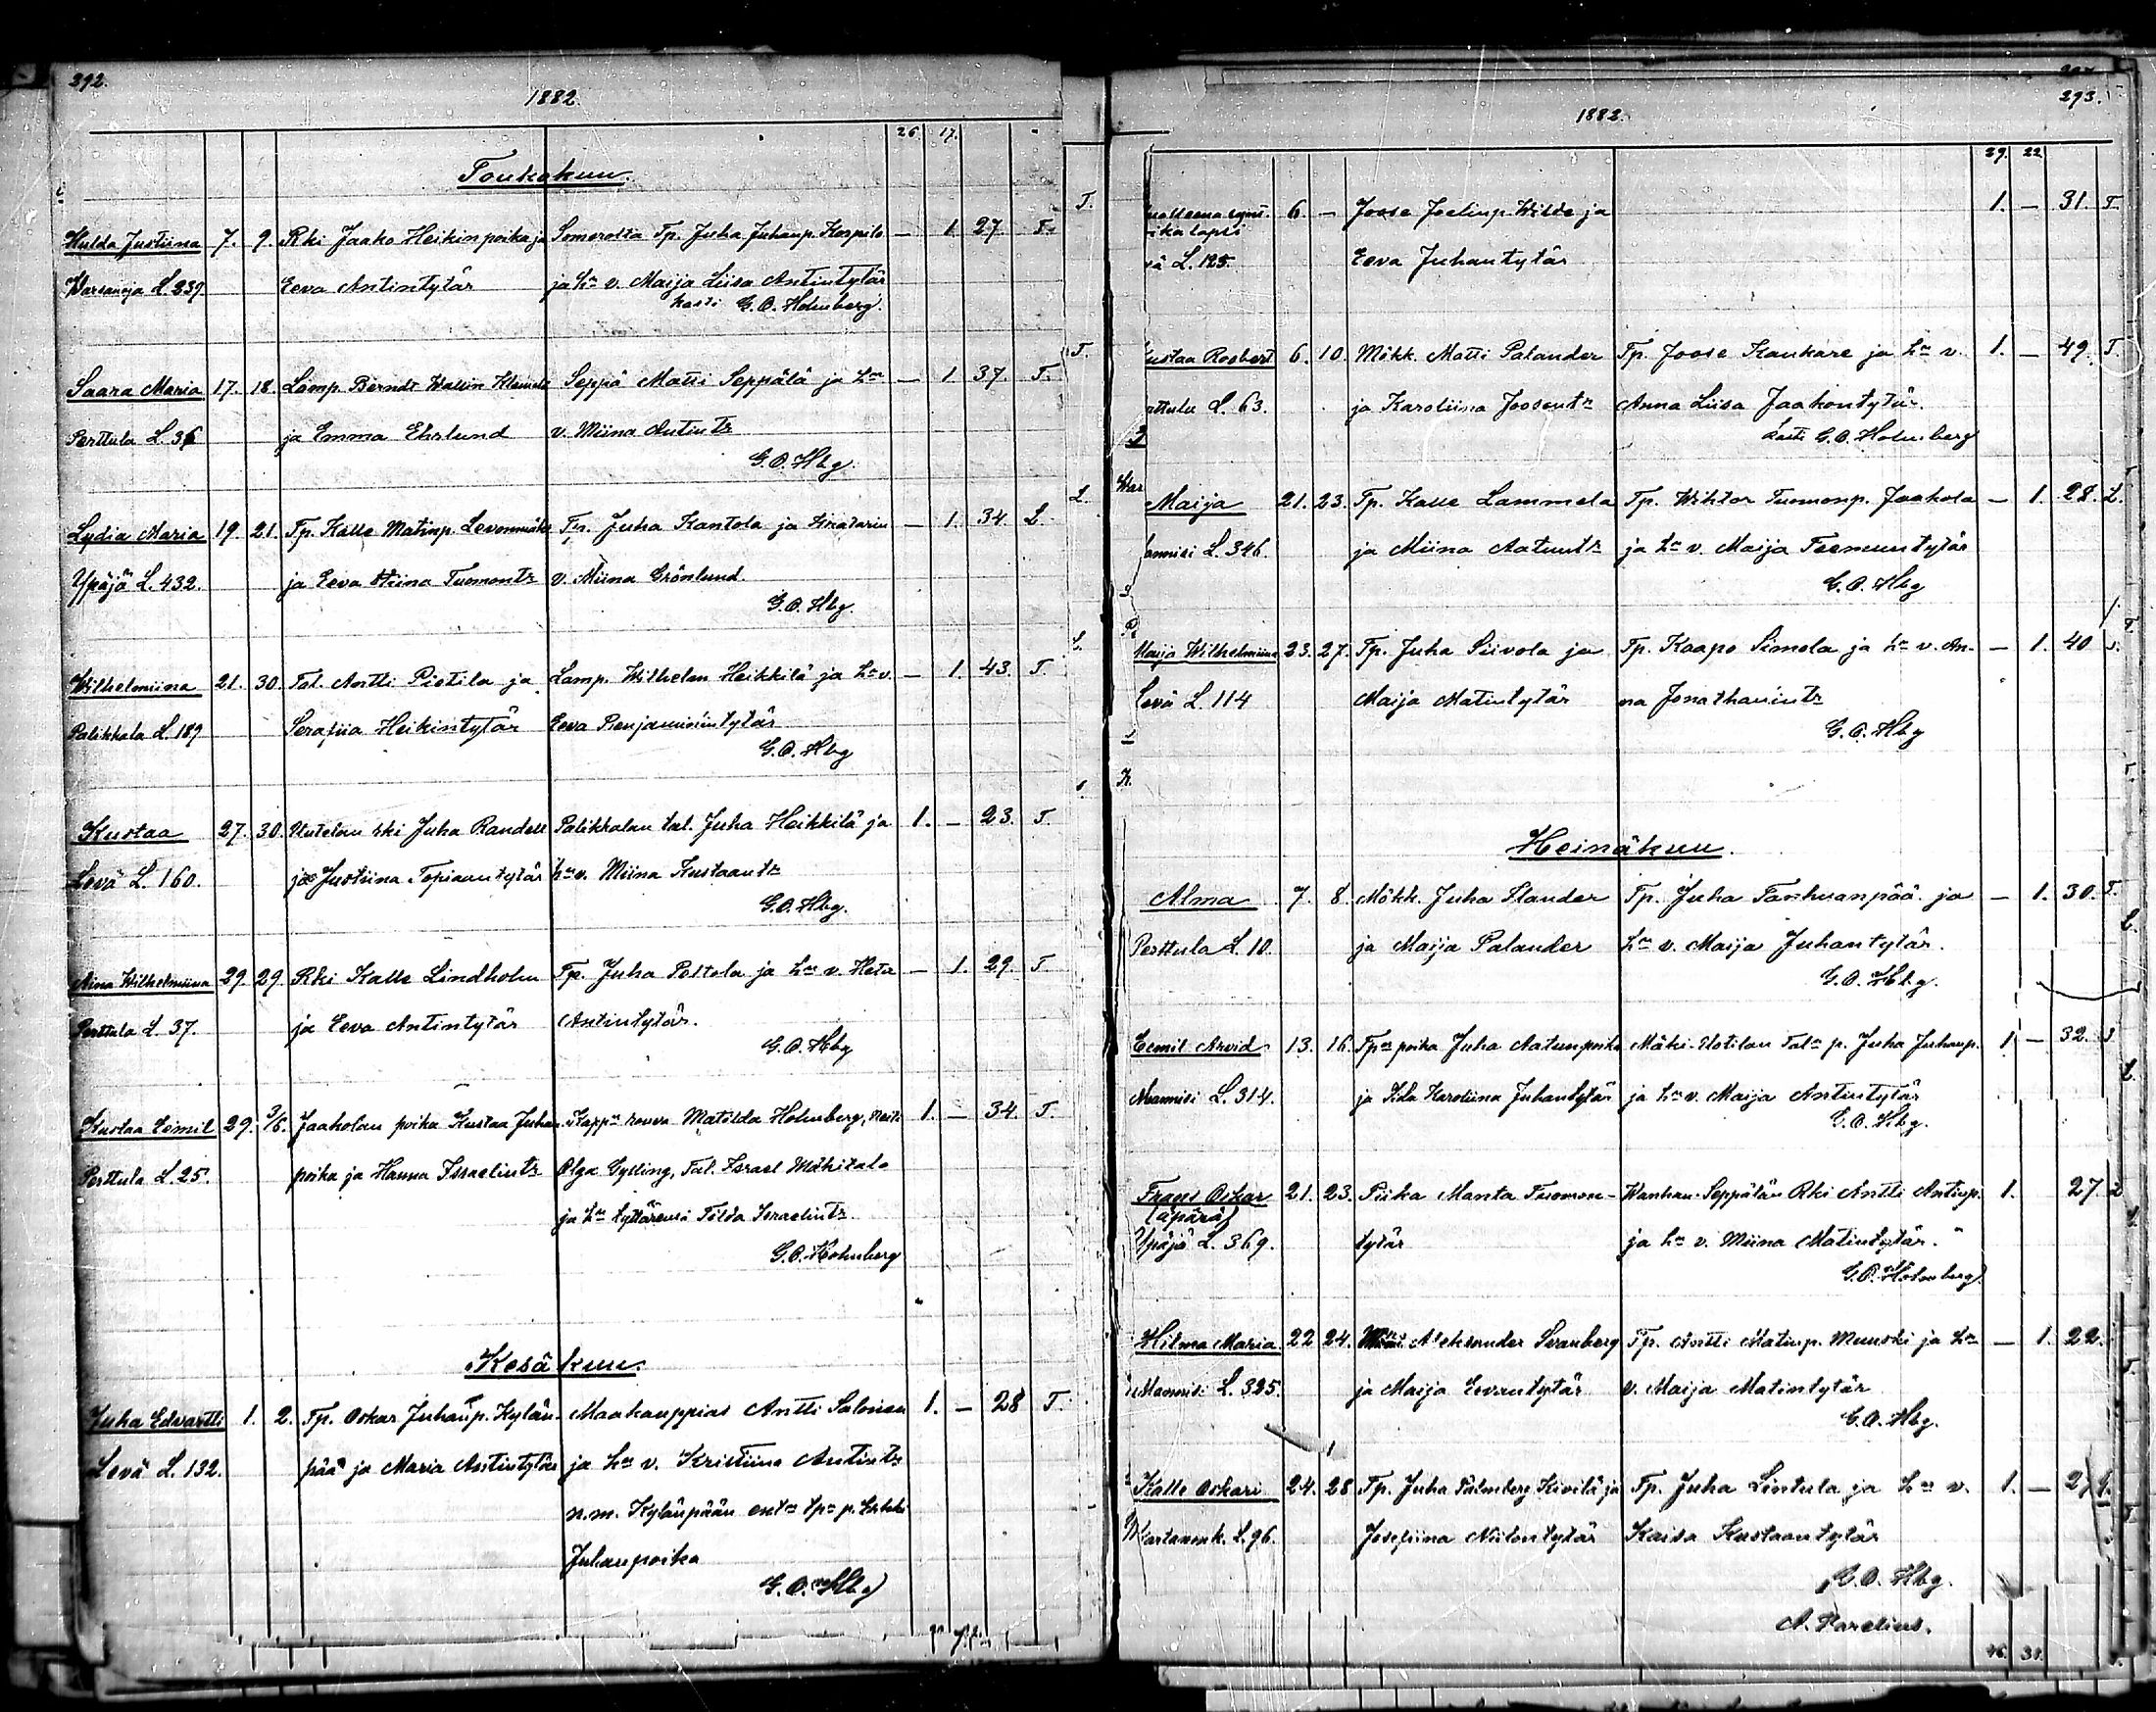 292.
1882.
26. 17.
Toukokuu.
Hulda Justiina 7. 9. Rki Jaako Heikinpoika ja Somerolta Tp. Juha Juhanp. — 1 27 T.
L. 239 Eeva Antintytär ja hn v. Maija Liisa Antintytär
kasti G.O. Holmberg.
Saara Maria 17. 18. Lamp. Berndt Wallin Seppä Matti Seppälä ja hn — 1 37. T.
Perttula L. 36 ja Emma Ehrlund v. Miina Antintr
G.O. Hbg.
Lydia Maria 19. 21. Tp. Kalle Matinp. Levonmäki Tp. Juha Kantola ja — 1. 34 L.
Ypäjä L. 432. ja Eeva Stiina Tuomontr v. Miina Grönlund.
G.O. Hbg.
Wilhelmiina 21. 30. Tal. Antti Pietilä ja Lamp. Wilhelm Heikkilä ja hn v. — 1. 43. T.
Palikkala L. 189 Serafiia Heikintytär Eeva Benjaminintytär
G.O. Hbg
Kustaa 27. 30. Uutelan rki Juha Randell Palikkalan tal. Juha Heikkilä ja 1. — 23. T.
Levä L. 160. ja Justiina Topiaantytär hn v. Miina Kustaantr
G.O. Hbg.
Aina Wilhelmiina 29. 29. Rki Kalle Lindholm Tp. Juha Poltola ja hn v. Heta — 1. 29. T
Perttula L. 37. ja Eeva Antintytär Antintytär.
G.O. Hbg
Kustaa Eemil 29. 3/6. Jaakolan poika Kustaa Juhan Kappn rouva Matilda Holmberg, neiti 1. — 34. T.
Perttula L. 25. poika ja Hanna Israelintr Olga Gylling, Tal. Israel Mäkitalo
ja hn tyttärensä Tilda Israelintr
G.O. Holmberg
Kesäkuu.
Juha Edvartti 1. 2. Tp. Oskar Juhanp. Kylän- Maakauppias Antti Salonen 1. — 28 T.
Levä L. 132. pää ja Maria Antintytär ja hn v. Kristiina Antintr
n.m. Kylänpään ent. tpn p. Erkki
Juhanpoika
G.O. Hbg
293.
1882.
29. 22
6. — Joose Joelinp. Wilde ja 1. — 31. T.
L. 125. Eeva Juhantytär
Kustaa Roobert 6. 10. Mökk. Matti Palander Tp. Joose Kaukare ja hn v. 1. — 49. T
Perttula L. 63. ja Karoliina Joosentr Anna Liisa Jaakontytär.
kasti G.O. Holmberg
Maija 21. 23. Tp. Kalle Lammela Tp. Wihtor Tuomonp. Jaakola — 1. 28. L.
Mannisi L. 346. ja Miina Aatuntr ja hn v. Maija Teemuntytär
G.O. Hbg
Maija Wilhelmiina 23. 27. Tp. Juha Siivola ja Tp. Kaapo Simola ja hn v. An- — 1. 40
Levä L. 114 Maija Matintytär na Jonathanintr
G.O. Hbg
Heinäkuu.
Alma 7. 8. Mökk. Juha Slander Tp. Juha Tanhuanpää ja — 1. 30. T.
Perttula L. 10. ja Maija Palander hn v. Maija Juhantytär.
G.O. Hbg.
Eemil Arvid 13. 16. Tpn poika Juha Aatunpoika Mäki-Uotilan Taln p. Juha Juhanp. 1 — 32.
Mannisi L. 314. ja Iida Karoliina Juhantytär ja hn v. Maija Antintytär
G.O. Hbg.
Frans Oskar 21. 23. Piika Manta Tuomon- Wanhan-Seppälän Rki Antti Antinp. 1. 27.
(äpärä)
Ypäjä L. 369. tytär ja hn v. Miina Matintytär.
G.O. Holmberg
Hilma Maria 22 24. Aleksander Svanberg Tp. Antti Matinp. Munski ja hn — 1. 22.
Mannisi L. 325. ja Maija Eevantytär v. Maija Matintytär
G.O. Hbg.
Kalle Oskari 24. 28 Tp. Juha Palmberg Kivilä ja Tp. Juha Lintula ja hn v. 1. — 27
Kartanonk. L. 96. Josefiina Niilontytär Kaisa Kustaantytär
G.O. Hbg.
A. Parelius.